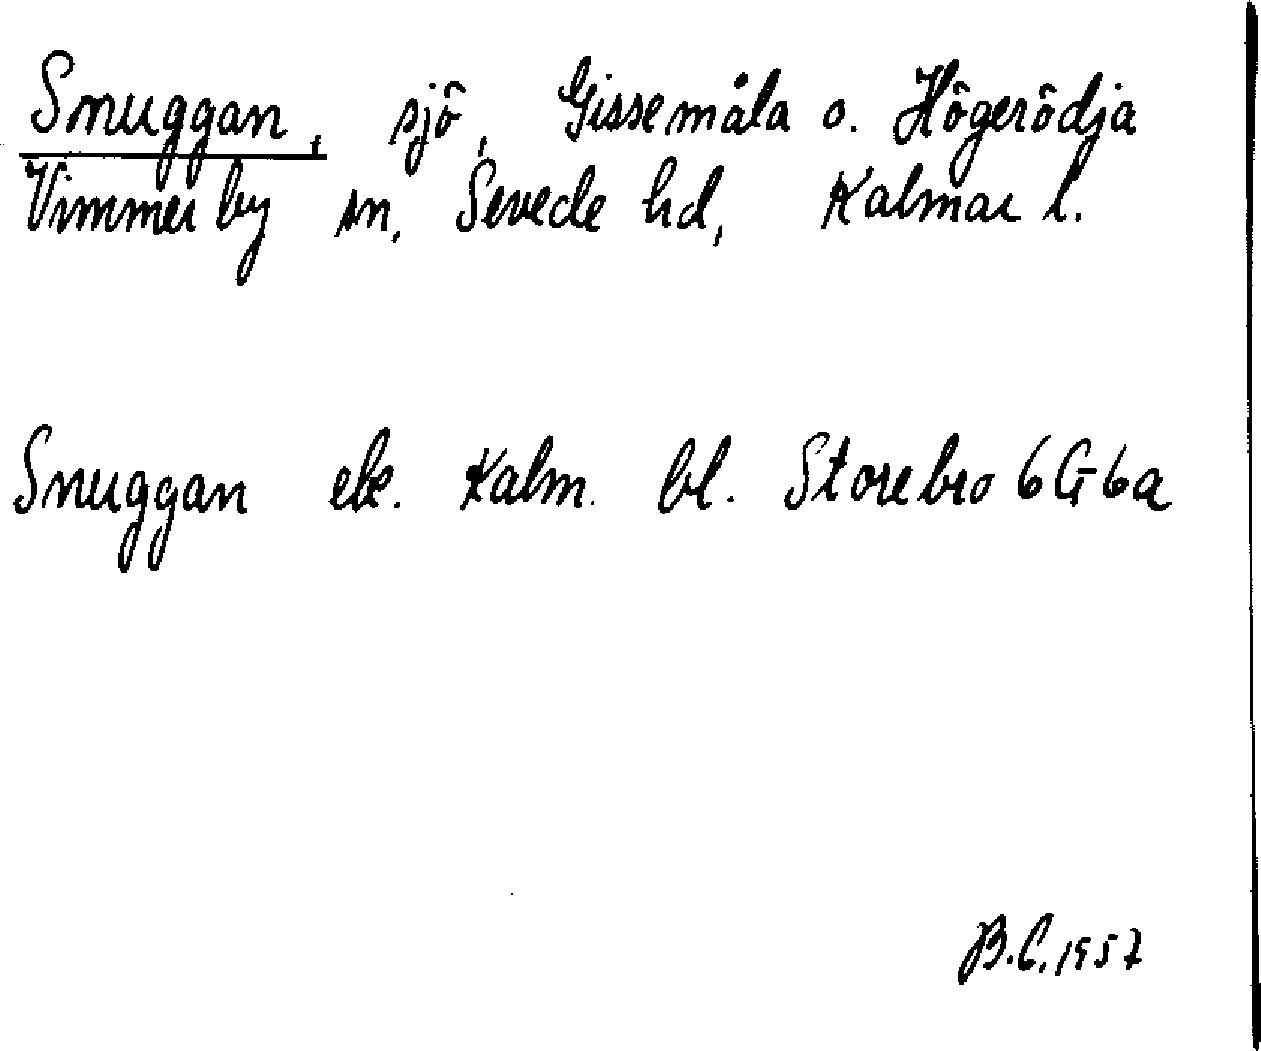 Snuggan, sjö, Gissemåla o. Högerödja
Vimmerby sn, Sevede hd, Kalmar l.
Snuggan ek. Kalm. bl. Storebro 6G6a
B.C. 1957